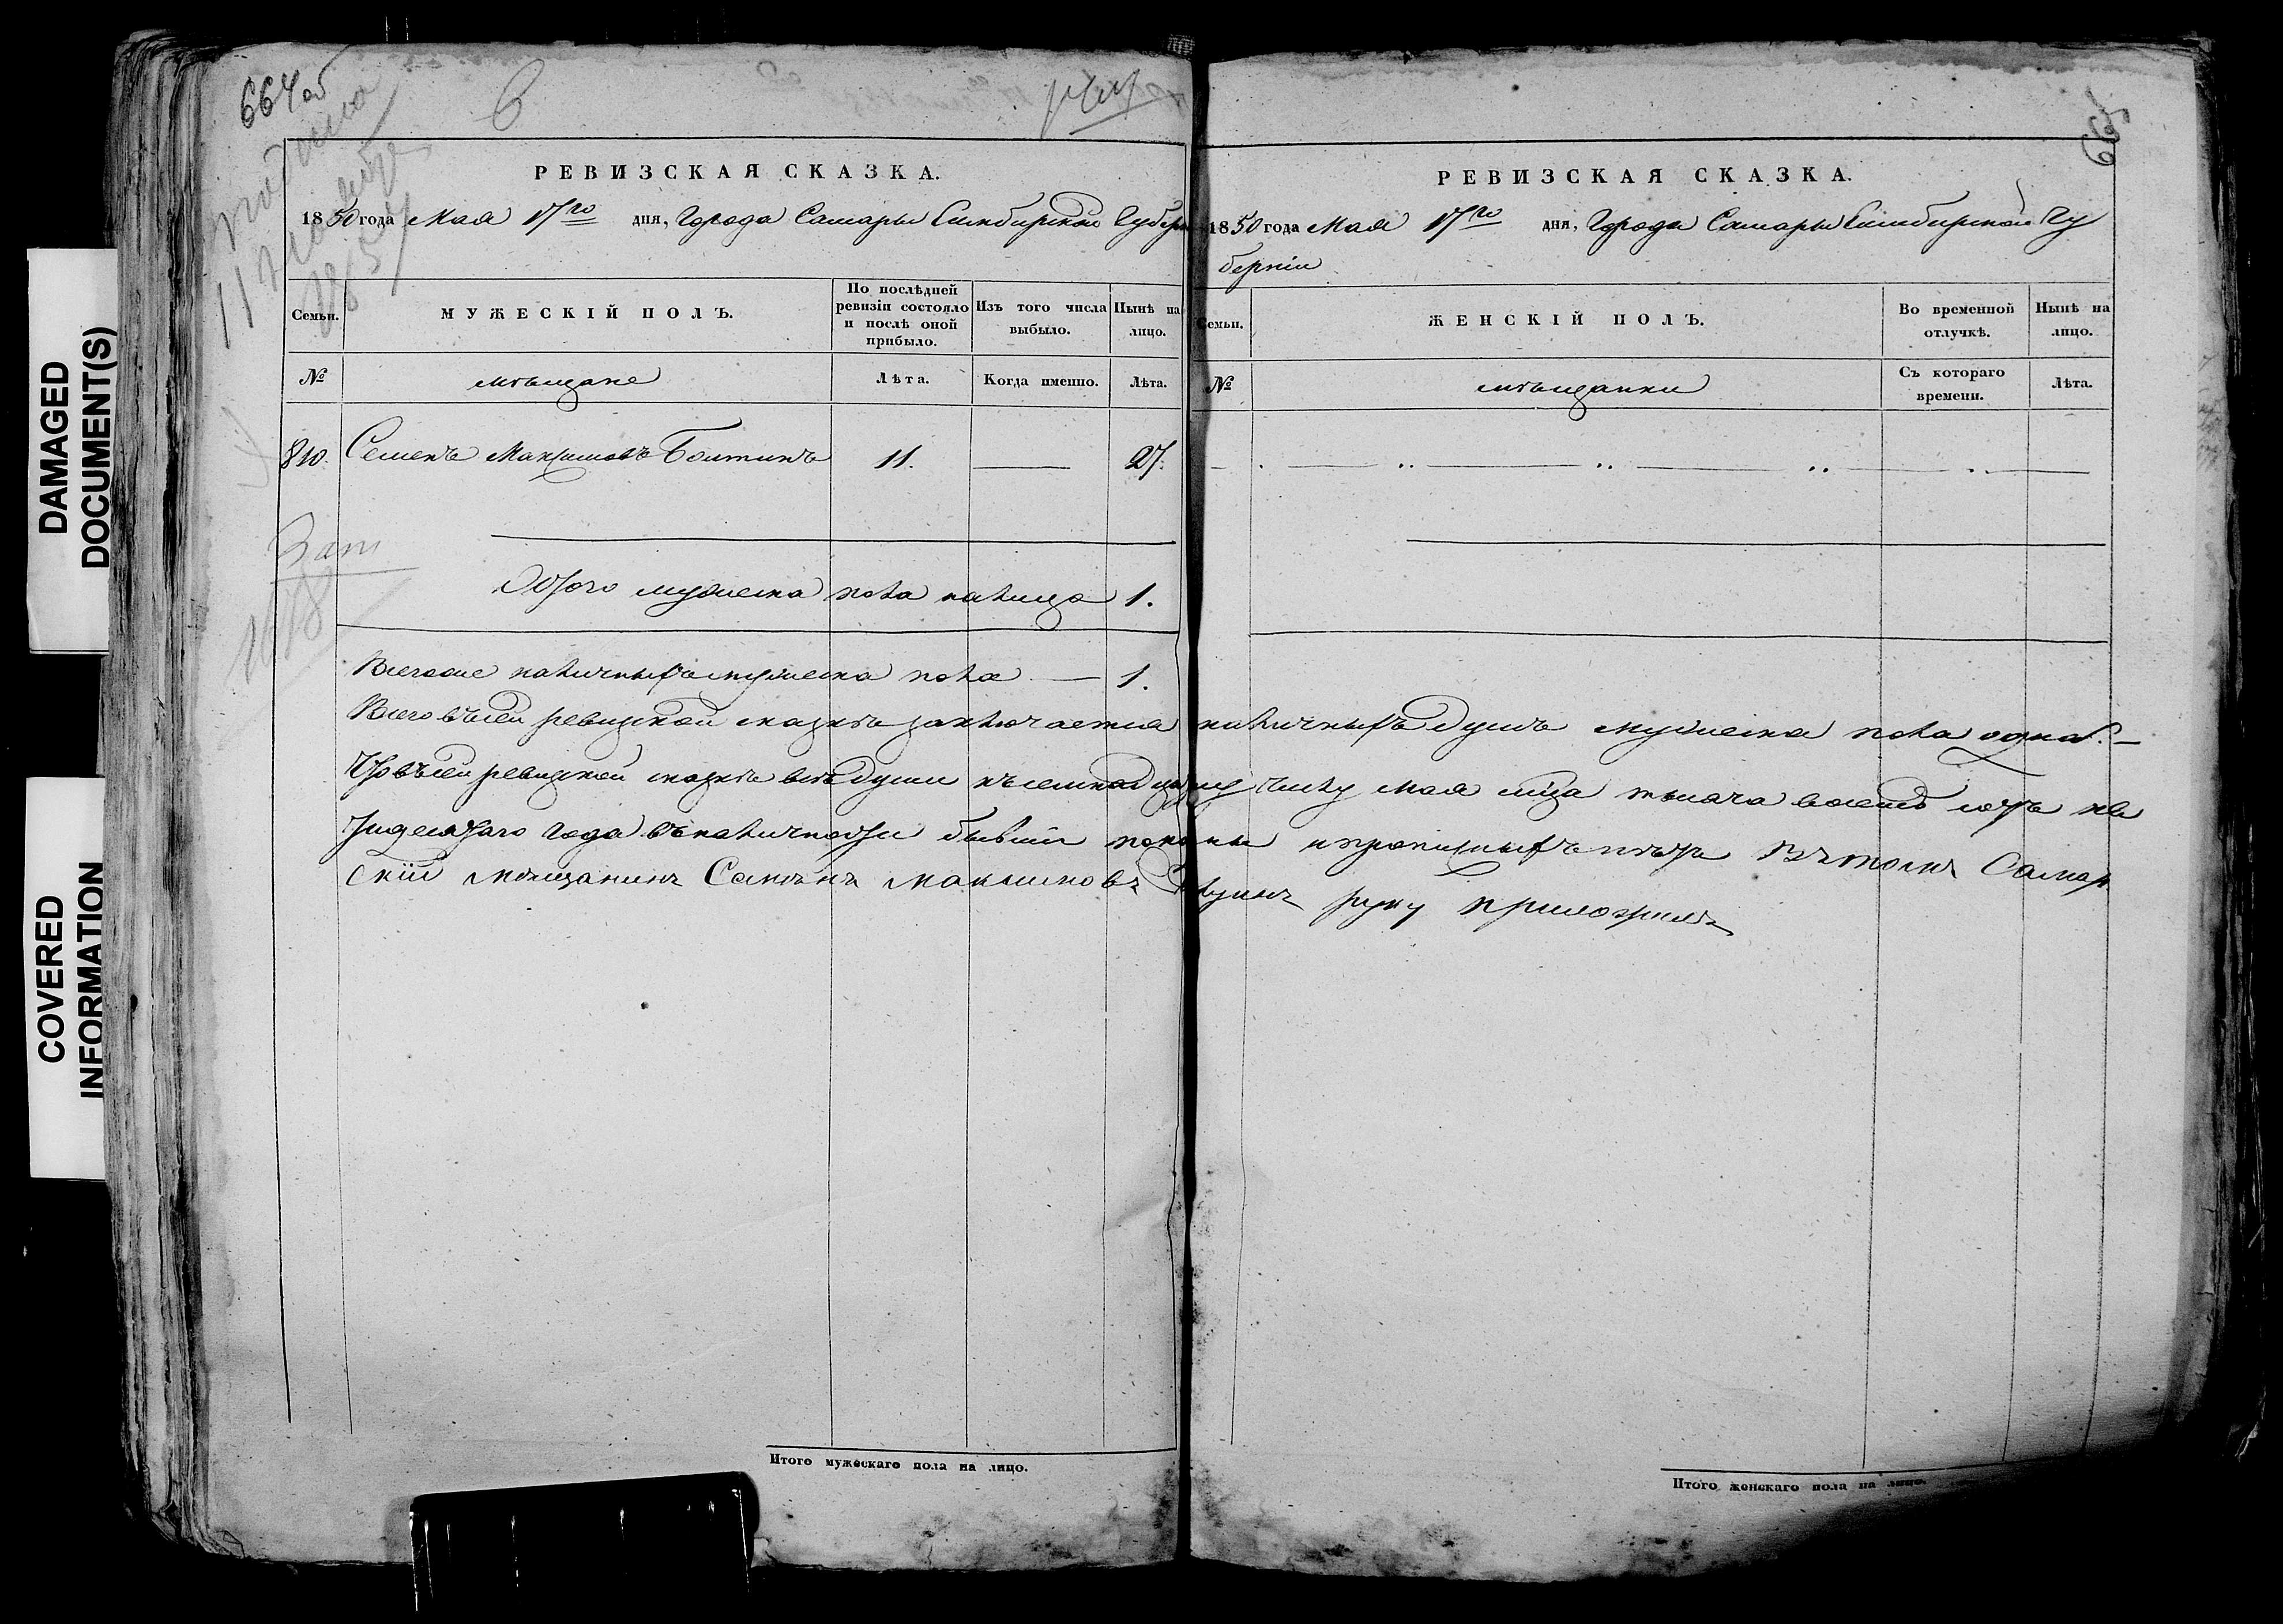 664 об
6
665
РЕВИЗСКАЯ СКАЗКА.
1850 года Мая 17го дня, Города Самары Симбирской Губерн
Семьи.
МУЖЕСКІЙ ПОЛЪ.
По послѣдней ревизіи состояло и послѣ оной прибыло.
Изъ того числа выбыло.
Нынѣ на лицо.
№
мѣщане
Лѣта.
Когда именно.
Лѣта.
810. Семенъ Максимовъ 11. — 27.
Итого мужеска пола налицо 1.
Всего наличныхъ мужеска пола — 1.
РЕВИЗСКАЯ СКАЗКА.
1850 года Мая 17го дня, Города Самары Симбирской Гу
берніи
Семьи.
ЖЕНСКІЙ ПОЛЪ.
Во временной отлучкѣ.
Нынѣ на лицо.
№
мѣщанки
Съ котораго времени.
Лѣта.
Всего въ сей ревизской сказкѣ заключается наличныхъ душъ мужеска пола одна. —
Что въ сей ревизской сказкѣ всѣ души къ семнадцатому числу Мая мца тысяча восемьсотъ пя
тидесятаго года въ наличности бывшіи показаны и прописныхъ нѣтъ Въ томъ Самар
скій мещанинъ Семенъ Максимовъ руку приложилъ
Итого мужескаго пола на лицо.
Итого женскаго пола на лицо.
DAMAGED
DOCUMENT(S)
COVERED
INFORMATION